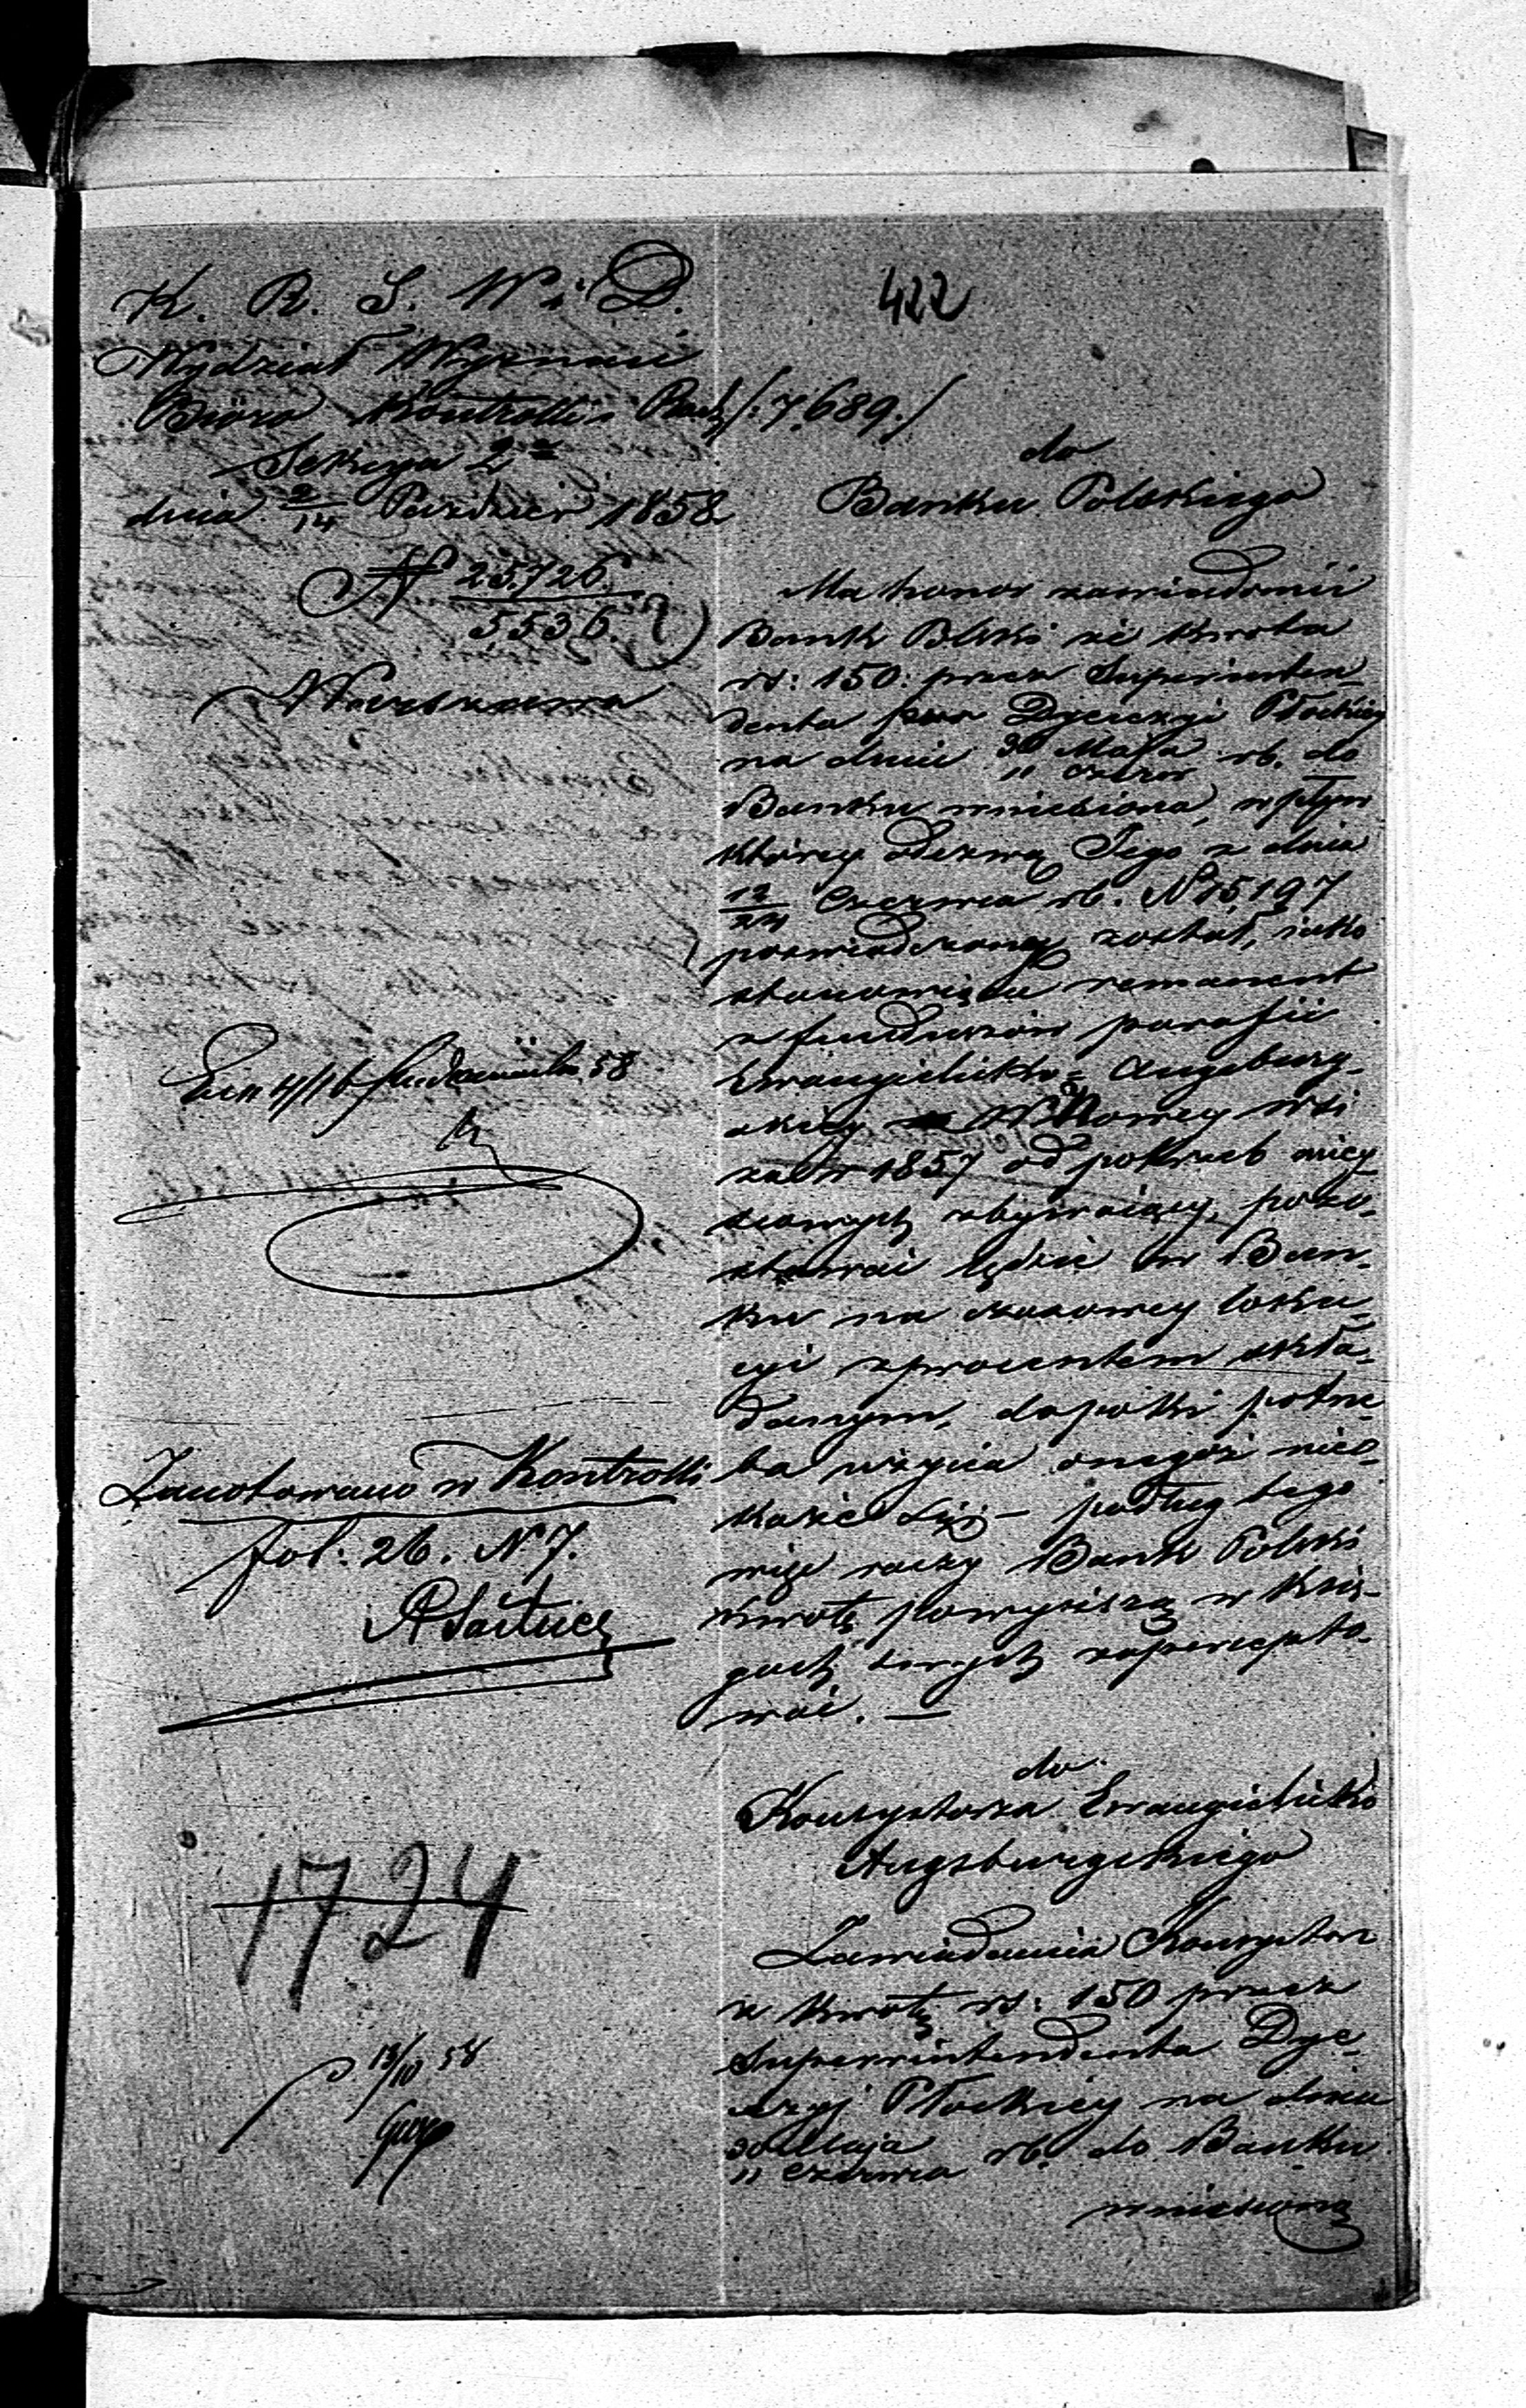 422
K. R. S. W. i D.
Wydział Wyznań
Bióro Kontrolli i Rach /: 7,689./
Sekcya 2ª
dnia 2/14 Paździer 1858
N 25726
5536.
Warszawa
Zanotowano w Kontrolli
fol: 26. N 7.
1724
13/10 58
do
Banku Polskiego
Ma honor zawiadomić
Bank Polski że kwota
rs: 150: przez Superinten-
denta Dyecezyi Płockiey
na dniu 30 Maja / 11 Czerw rb. do
Banku wniesiona, wpływ
którey odezwą Jego z dnia
12/24 Czerwca rb. N 15197
poswiadczony został, iako
stanowiąca remanent
z funduszów parafii
Ewangielicko-Augsburg-
skiey w Nowey wsi
za r 1857 od potrzeb miey-
scowych zbywaiący, pozo-
stawać będzie w Ban-
ku na czasowey loka-
cyi z procentem skła-
danym, dopóki potrze-
ba użycia onegoż nieo-
każe się — podług tego
więc raczy Bank Polski
kwotę powyższą w Księ-
gach swych zapercepto-
wać. —
do
Konsystorza Ewangielicko
Augsburgskiego
Zawiadamia Konsystorz
że kwotę rs: 150 przez
Superintendenta Dye-
cezyi Płockiey na dniu
30 Maja / 11 Czerwca rb. do Banku
wniesioną